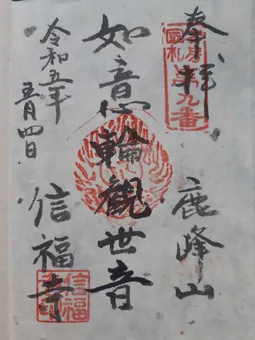 奉拝
第九番
鹿峰山
如意輪観世音
信福寺
令和五年
五月四日
信福寺